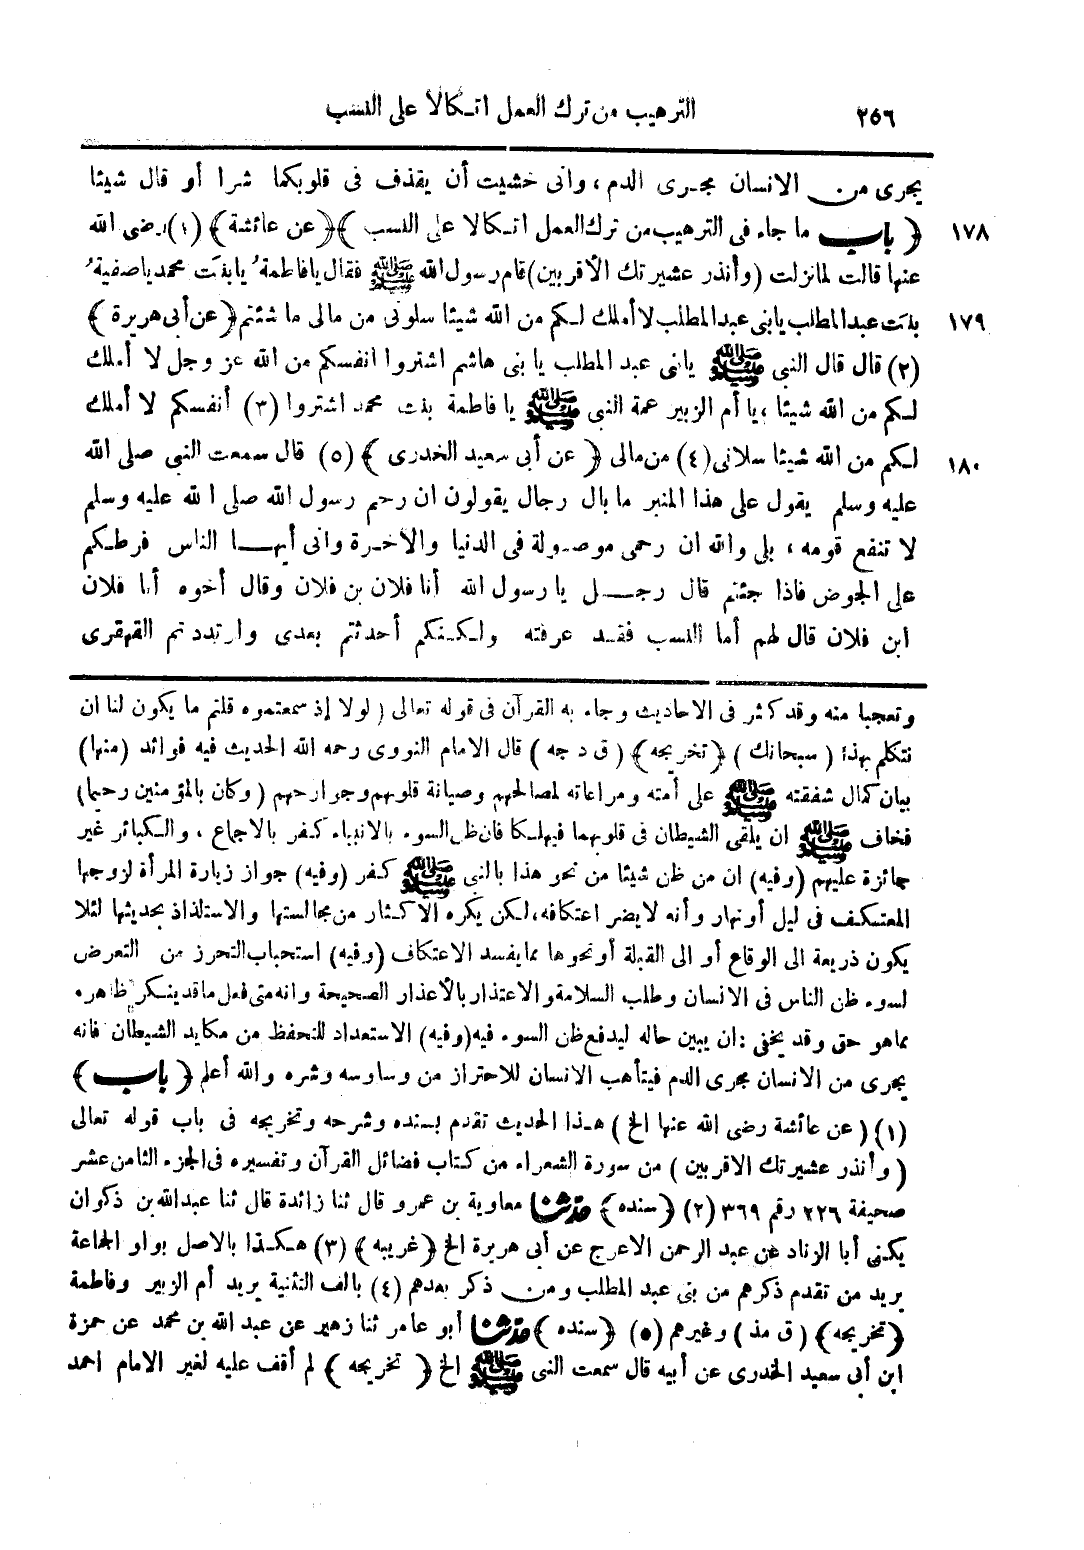 ٢٥٦ الترهيب من ترك العمل اتكالا على النسب
يجرى من الانسان مجرى الدم، وانى خشيت أن يقذف فى قلوبكما شرا أو قال شيئا
١٧٨ ﴿ باب ما جاء فى الترهيب من ترك العمل اتكالا على النسب ﴾﴿عن عائشة﴾ (١) رضى الله
عنها قالت لما نزلت (وأنذر عشيرتك الأقربين) قام رسول الله ﷺ فقال يا فاطمة ُ يا بنت محمد يا صفية ُ
١٧٩ بنت عبد المطلب يا بنى عبد المطلب لا أملك لكم من الله شيئا سلونى من مالى ما شئتم ﴿عن أبى هريرة﴾
(٢) قال قال النبى ﷺ يا بنى عبد المطلب يا بنى هاشم اشتروا انفسكم من الله عز وجل لا أملك
لكم من الله شيئا، يا أم الزبير عمة النبى ﷺ يا فاطمة بنت محمد اشتروا (٣) أنفسكم لا أملك
١٨٠ لكم من الله شيئا سلانى (٤) من مالى ﴿ عن أبى سعيد الخدرى ﴾ (٥) قال سمعت النبى صلى الله
عليه وسلم يقول على هذا المنبر ما بال رجال يقولون ان رحم رسول الله صلى الله عليه وسلم
لا تنفع قومه، بلى والله ان رحمى موصولة فى الدنيا والأخرة وانى أيها الناس فرطكم
على الحوض فاذا جئتم قال رجل يا رسول الله أنا فلان بن فلان وقال أخوه أنا فلان
ابن فلان قال لهم أما النسب فقد عرفته ولكنكم أحدثتم بعدى وارتددتم القهقرى
وتعجبا منه وقد كثر فى الاحاديث وجاء به القرآن فى قوله تعالى (لولا إذ سمعتموه قلتم ما يكون لنا ان
نتكلم بهذا (سبحانك) ﴿تخريجه﴾ (ق د جه) قال الامام النووى رحمه الله الحديث فيه فوائد (منها)
بيان كمال شفقته ﷺ على أمته ومراعاته لمصالحهم وصيانة قلوبهم وجوارحهم (وكان بالمؤمنين رحيما)
فخاف ﷺ ان يلقى الشيطان فى قلوبهما فيهلكا فان ظن السوء بالانبياء كفر بالاجماع، والكبائر غير
جائزة عليهم (وفيه) ان من ظن شيئا من نحو هذا بالنبى ﷺ كفر (وفيه) جواز زيارة المرأة لزوجها
المعتكف فى ليل أو نهار وأنه لا يضر اعتكافه، لكن يكره الاكثار من مجالستها والاستلذاذ بحديثها لئلا
يكون ذريعة الى الوقاع أو الى القبلة أو نحوها مما يفسد الاعتكاف (وفيه) استحباب التحرز من التعرض
لسوء ظن الناس فى الانسان وطلب السلامة والاعتذار بالأعذار الصحيحة وانه متى فعل ما قد ينكر ظاهره
مما هو حق وقد يخفى : ان يبين حاله ليدفع ظن السوء فيه (وفيه) الاستعداد للتحفظ من مكايد الشيطان فانه
يجرى من الانسان مجرى الدم فيتأهب الانسان للاحتراز من وساوسه وشره والله أعلم ﴿ باب ﴾
(١) (عن عائشة رضى الله عنها الخ) هذا الحديث تقدم بسنده وشرحه وتخريجه فى باب قوله تعالى
(وأنذر عشيرتك الاقربين) من سورة الشعراء من كتاب فضائل القرآن وتفسيره فى الجزء الثامن عشر
صحيفة ٢٢٦ رقم ٣٦٩ (٢) ﴿سنده﴾ حدثنا معاوية بن عمرو قال ثنا زائدة قال ثنا عبد الله بن ذكوان
يكنى أبا الزناد عن عبد الرحمن الاعرج عن أبى هريرة الخ ﴿غريبه﴾ (٣) هكذا بالاصل بواو الجماعة
يريد من تقدم ذكرهم من بنى عبد المطلب ومن ذكر بعدهم (٤) بالف التثنية يريد أم الزبير وفاطمة
﴿تخريجه﴾ (ق مذ) وغيرهم (٥) ﴿سنده﴾ حدثنا أبو عامر ثنا زهير عن عبد الله بن محمد عن حمزة
ابن أبى سعيد الخدرى عن أبيه قال سمعت النبى ﷺ الخ ﴿ تخريجه ﴾ لم أقف عليه لغير الامام احمد